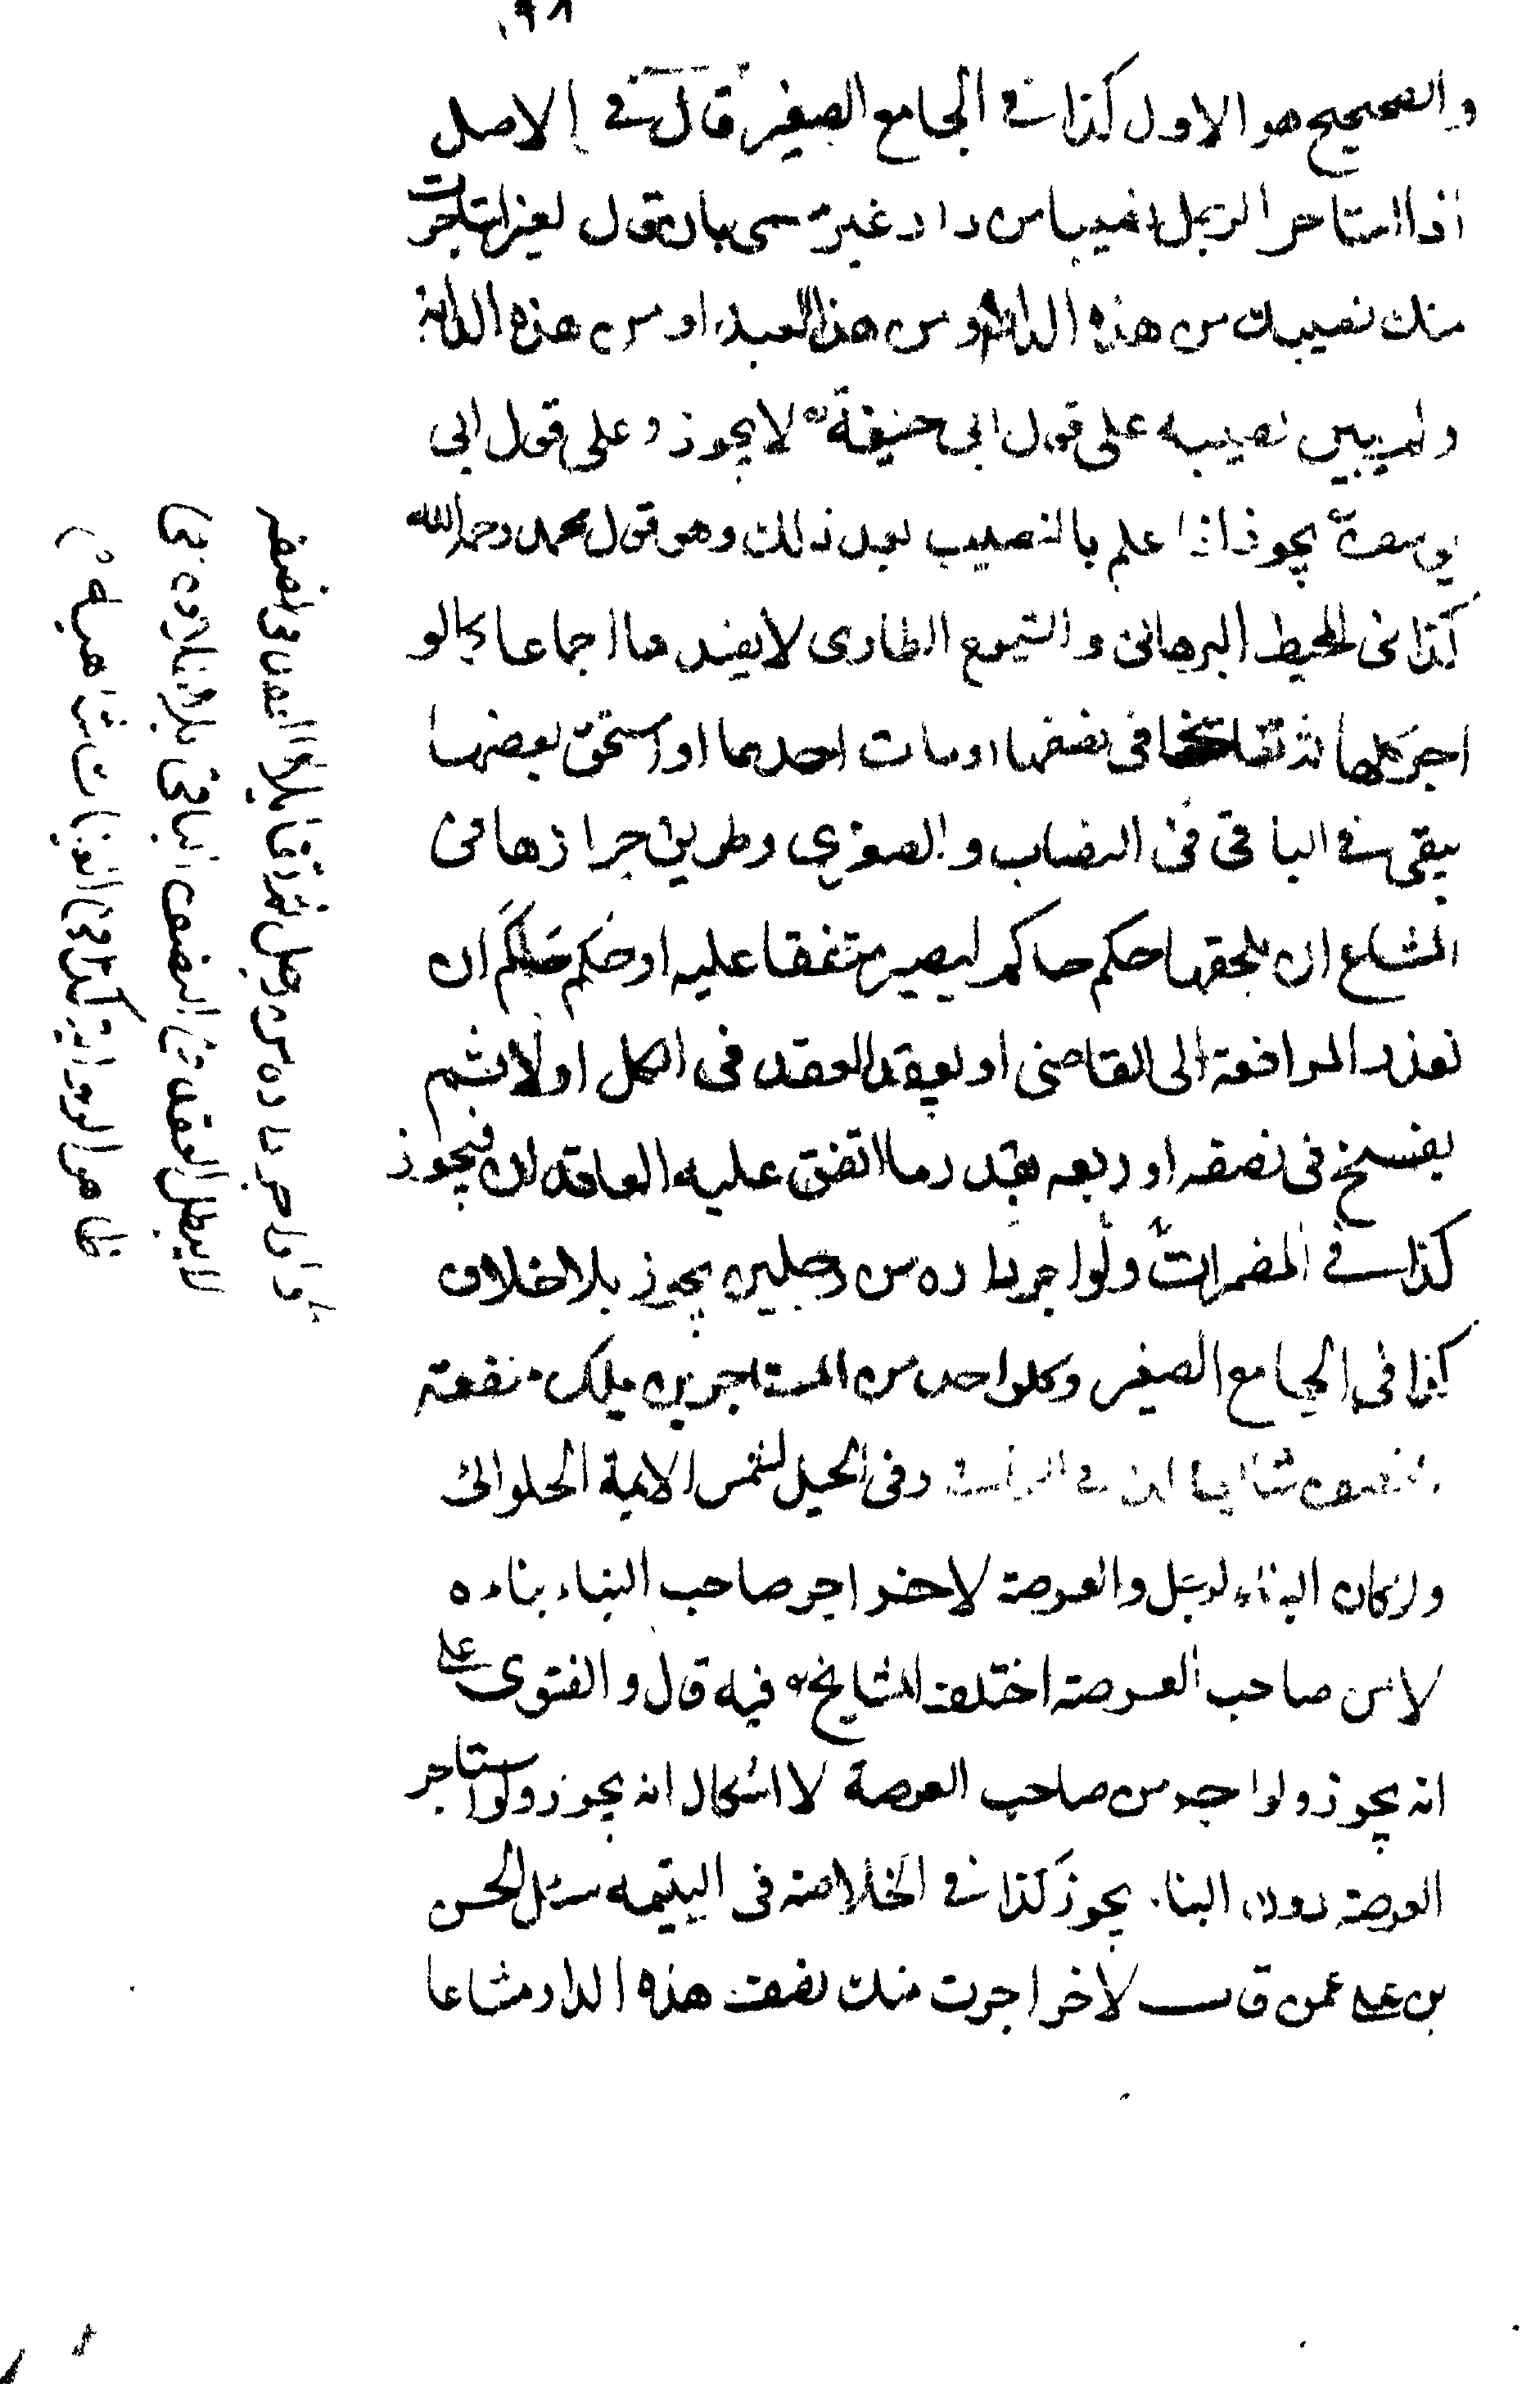 والصحيح هو الاول كذا في الجامع الصغير قال في الاصل
اذا استاجر الرجل نصيبا من دار غير مسمى بان قال لغيره استاجرت
منك نصيبك من هذه الدار او من هذا العبد او من هذه الدابة
ولم يبين نصيبه على قول ابى حنيفة رح لا يجوز وعلى قول ابى
يوسف رح يجوز اذا علم بالنصيب بعد ذلك وهو قول محمد رحمه الله
كذا في المحيط البرهانى والشيوع الطارى لا يفسدها اجماعا كما لو
اجر كلها ثم تفاسخا في نصفها او مات احدهما او استحق بعضها
يبقى في الباقى في النصاب و الصغرى وطريق جوازها في
المشاع ان يلحقها حكم حاكم ليصير متفقا عليه او حكم حاكم ان
تعذر المرافعة الى القاضى او يعقد العقد في الكل اولا ثم
يفسخ في نصفه او ربعه بقدر ما اتفق عليه العاقدان فيجوز
كذا في المضمرات ولو اجر داره من رجلين يجوز بلا خلاف
كذا في الجامع الصغير وكل واحد من المستاجرين يملك منفعة
النصف شائعا وفى الحيل لشمس الائمة الحلوائى
ولو كان البناء لرجل والعرصة لاخر اجر صاحب البناء بناءه
لا من صاحب العرصة اختلف المشايخ فيه قال والفتوى على
انه يجوز ولو اجر من صاحب العرصة لا اشكال انه يجوز ولو استاجر
العرصة دون البناء يجوز كذا في الخلاصة في اليتيمه سئل الحسن
بن على عمن قال لاخر اجرت منك نصف هذه الدار مشاعا
واما اجر داره من رجل ثم تقايلا العقد في النصف
لا يبطل العقد في النصف الباقى
ظاهر الرواية كذا في الغياثية